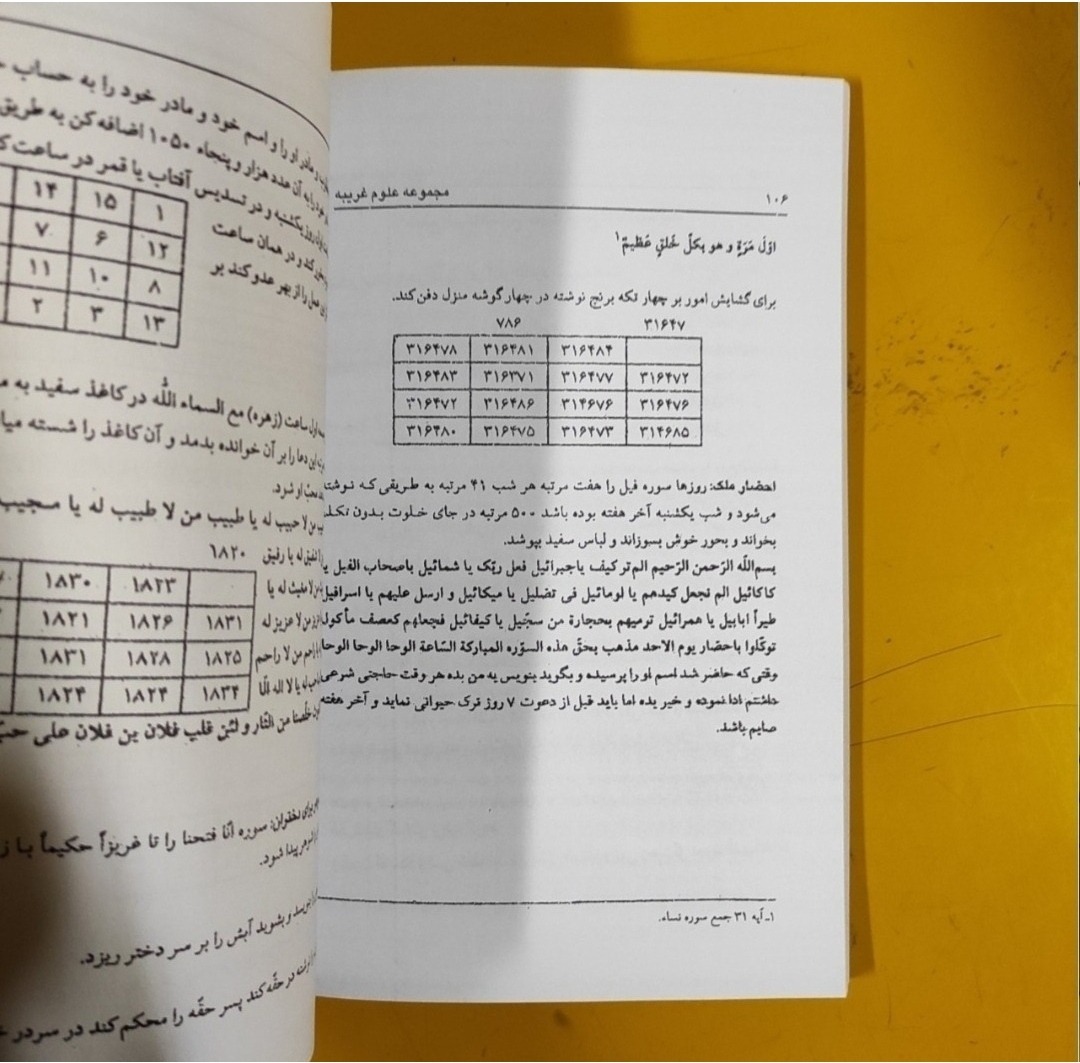 ۱۰۶ مجموعه علوم غریبه
اوّلَ مَرَةٍ و هو بکلّ خَلقٍ عَظیمٌ۱
برای گشایش امور بر چهار تکه برنج نوشته در چهار گوشه منزل دفن کند.
۳۱۶۴۷ ۷۸۶
۳۱۶۴۸۴ ۳۱۶۴۸۱ ۳۱۶۴۷۸
۳۱۶۴۷۲ ۳۱۶۴۷۷ ۳۱۶۳۷۱ ۳۱۶۴۸۳
۳۱۶۴۷۶ ۳۱۴۶۷۶ ۳۱۶۴۸۶ ۳۱۶۴۷۲
۳۱۴۶۸۵ ۳۱۶۴۷۳ ۳۱۶۴۷۵ ۳۱۶۴۸۰
احضار ملک: روزها سوره فیل را هفت مرتبه هر شب ۴۱ مرتبه به طریقی که نوشته
می‌شود و شب یکشنبه آخر هفته بوده باشد ۵۰۰ مرتبه در جای خلوت بدون تکلم
بخواند و بخور خوش بسوزاند و لباس سفید بپوشد.
بسم‌اللّه الرّحمن الرّحیم الم‌تر کیف یاجبرائیل فعل ربّک یا شمائیل باصحاب الفیل یا
کاکائیل الم نجعل کیدهم یا لومائیل فی تضلیل یا میکائیل و ارسل علیهم یا اسرافیل
طیراً ابابیل یا همرائیل ترمیهم بحجارة من سجّیل یا کیفائیل فجعلهم کعصف مأکول
توکّلوا باحضار یوم الاحد مذهب بحقّ هذه السوّره المبارکة السّاعة الوحا الوحا الوحا
وقتی که حاضر شد اسم او را پرسیده و بگوید بنویس به من بده هر وقت حاجتی شرعی
داشتم ادا نموده و خبر بده اما باید قبل از دعوت ۷ روز ترک حیوانی نماید و آخر هفته
صایم باشد.
۱ـ آیه ۳۱ جمع سوره نساء.
و مادر او را و اسم خود و مادر خود را به حساب
آن عدد هزار و پنجاه ۱۰۵۰ اضافه کن به طریق
روز یکشنبه و در تسدیس آفتاب یا قمر در ساعت
کند و در همان ساعت
عمل را از بهر عدو کند بر
۱ ۱۵ ۱۴
۱۲ ۶ ۷
۸ ۱۰ ۱۱
۱۳ ۳ ۲
اول ساعت (زهره) مع السماء اللّه در کاغذ سفید به
این دعا را بر آن خوانده بدمد و آن کاغذ را شسته
محبّ او شود.
من لا حبیب له یا طبیب من لا طبیب له یا مجیب
له یا رفیق ۱۸۲۰
من لا مغیث له یا
من لا عزیز له
من لا راحم
له یا لا اله الّا
۱۸۲۳ ۱۸۳۰
۱۸۳۱ ۱۸۲۶ ۱۸۲۱
۱۸۲۵ ۱۸۲۸ ۱۸۳۱
۱۸۳۴ ۱۸۲۴ ۱۸۲۴
خلّصنا من النّار و لیّن قلب فلان بن فلان علی
سوره انّا فتحنا را تا عزیزاً حکیماً با
پیدا شود.
و بشوید آبش را بر سر دختر ریزد.
در حقّه کند پسر حقّه را محکم کند در سردر